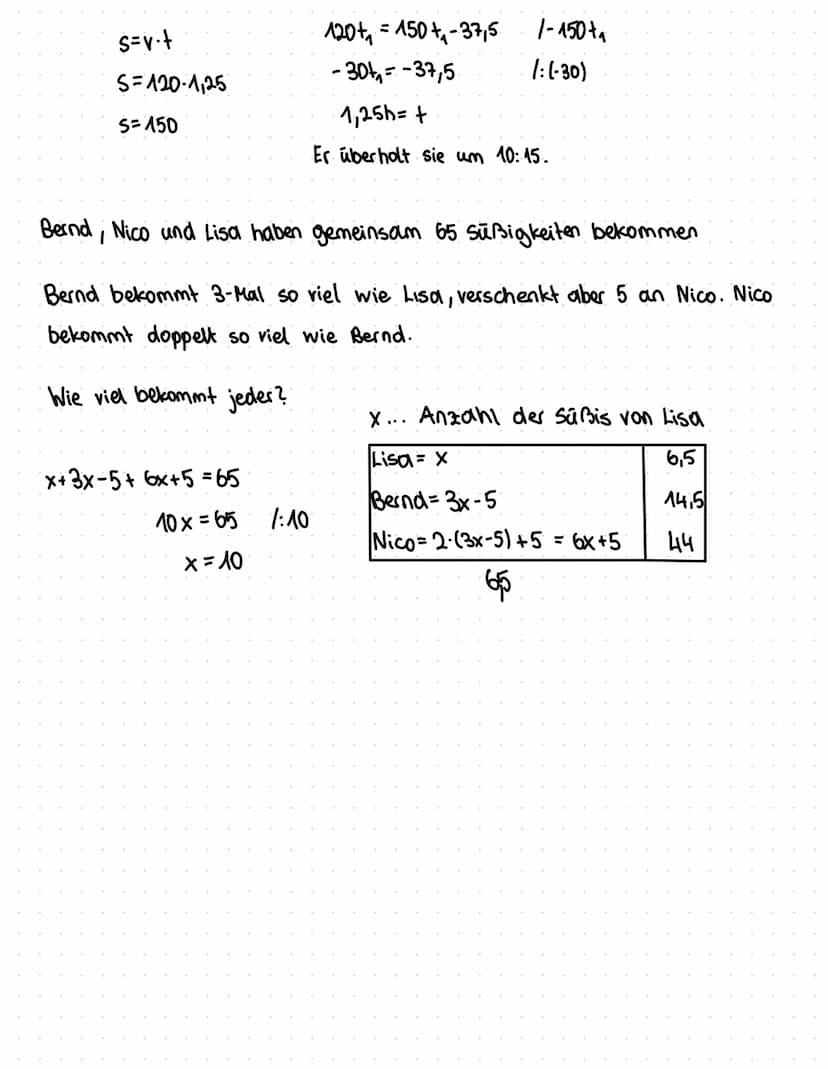 s=v·t
S=120·1,25
s=150
120t₁ = 150t₁-37,5 /-150t₁
-30t₁ = -37,5 /:(-30)
1,25h= t
Er überholt sie um 10:15.
Bernd, Nico und Lisa haben gemeinsam 65 Süßigkeiten bekommen
Bernd bekommt 3-Mal so viel wie Lisa, verschenkt aber 5 an Nico. Nico
bekommt doppelt so viel wie Bernd.
Wie viel bekommt jeder?
x+3x-5+6x+5=65
10x=65 /:10
x=10
x... Anzahl der Süßis von Lisa
Lisa= x 6,5
Bernd= 3x-5 14,5
Nico= 2·(3x-5)+5 = 6x+5 44
65